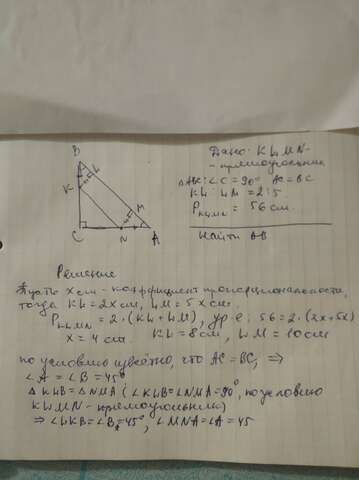 Дано: KLMN -
- прямоугольник
△ABC: ∠C = 90° AC = BC
KL : LM = 2:5
P KLMN = 56 см
Найти AB
B
L
K
M
C
N
A
Решение
Пусть x см - коэффициент пропорциональности,
тогда KL = 2x см, LM = 5x см.
P KLMN = 2·(KL+LM), ур-е: 56 = 2·(2x+5x)
x = 4 см KL = 8 см, LM = 10 см
по условию известно, что AC = BC, ⇒
∠A = ∠B = 45°
△KLB = △NMA (∠KLB = ∠NMA = 90°, по условию
KLMN - прямоугольник)
⇒ ∠LKB = ∠B = 45°, ∠MNA = ∠A = 45